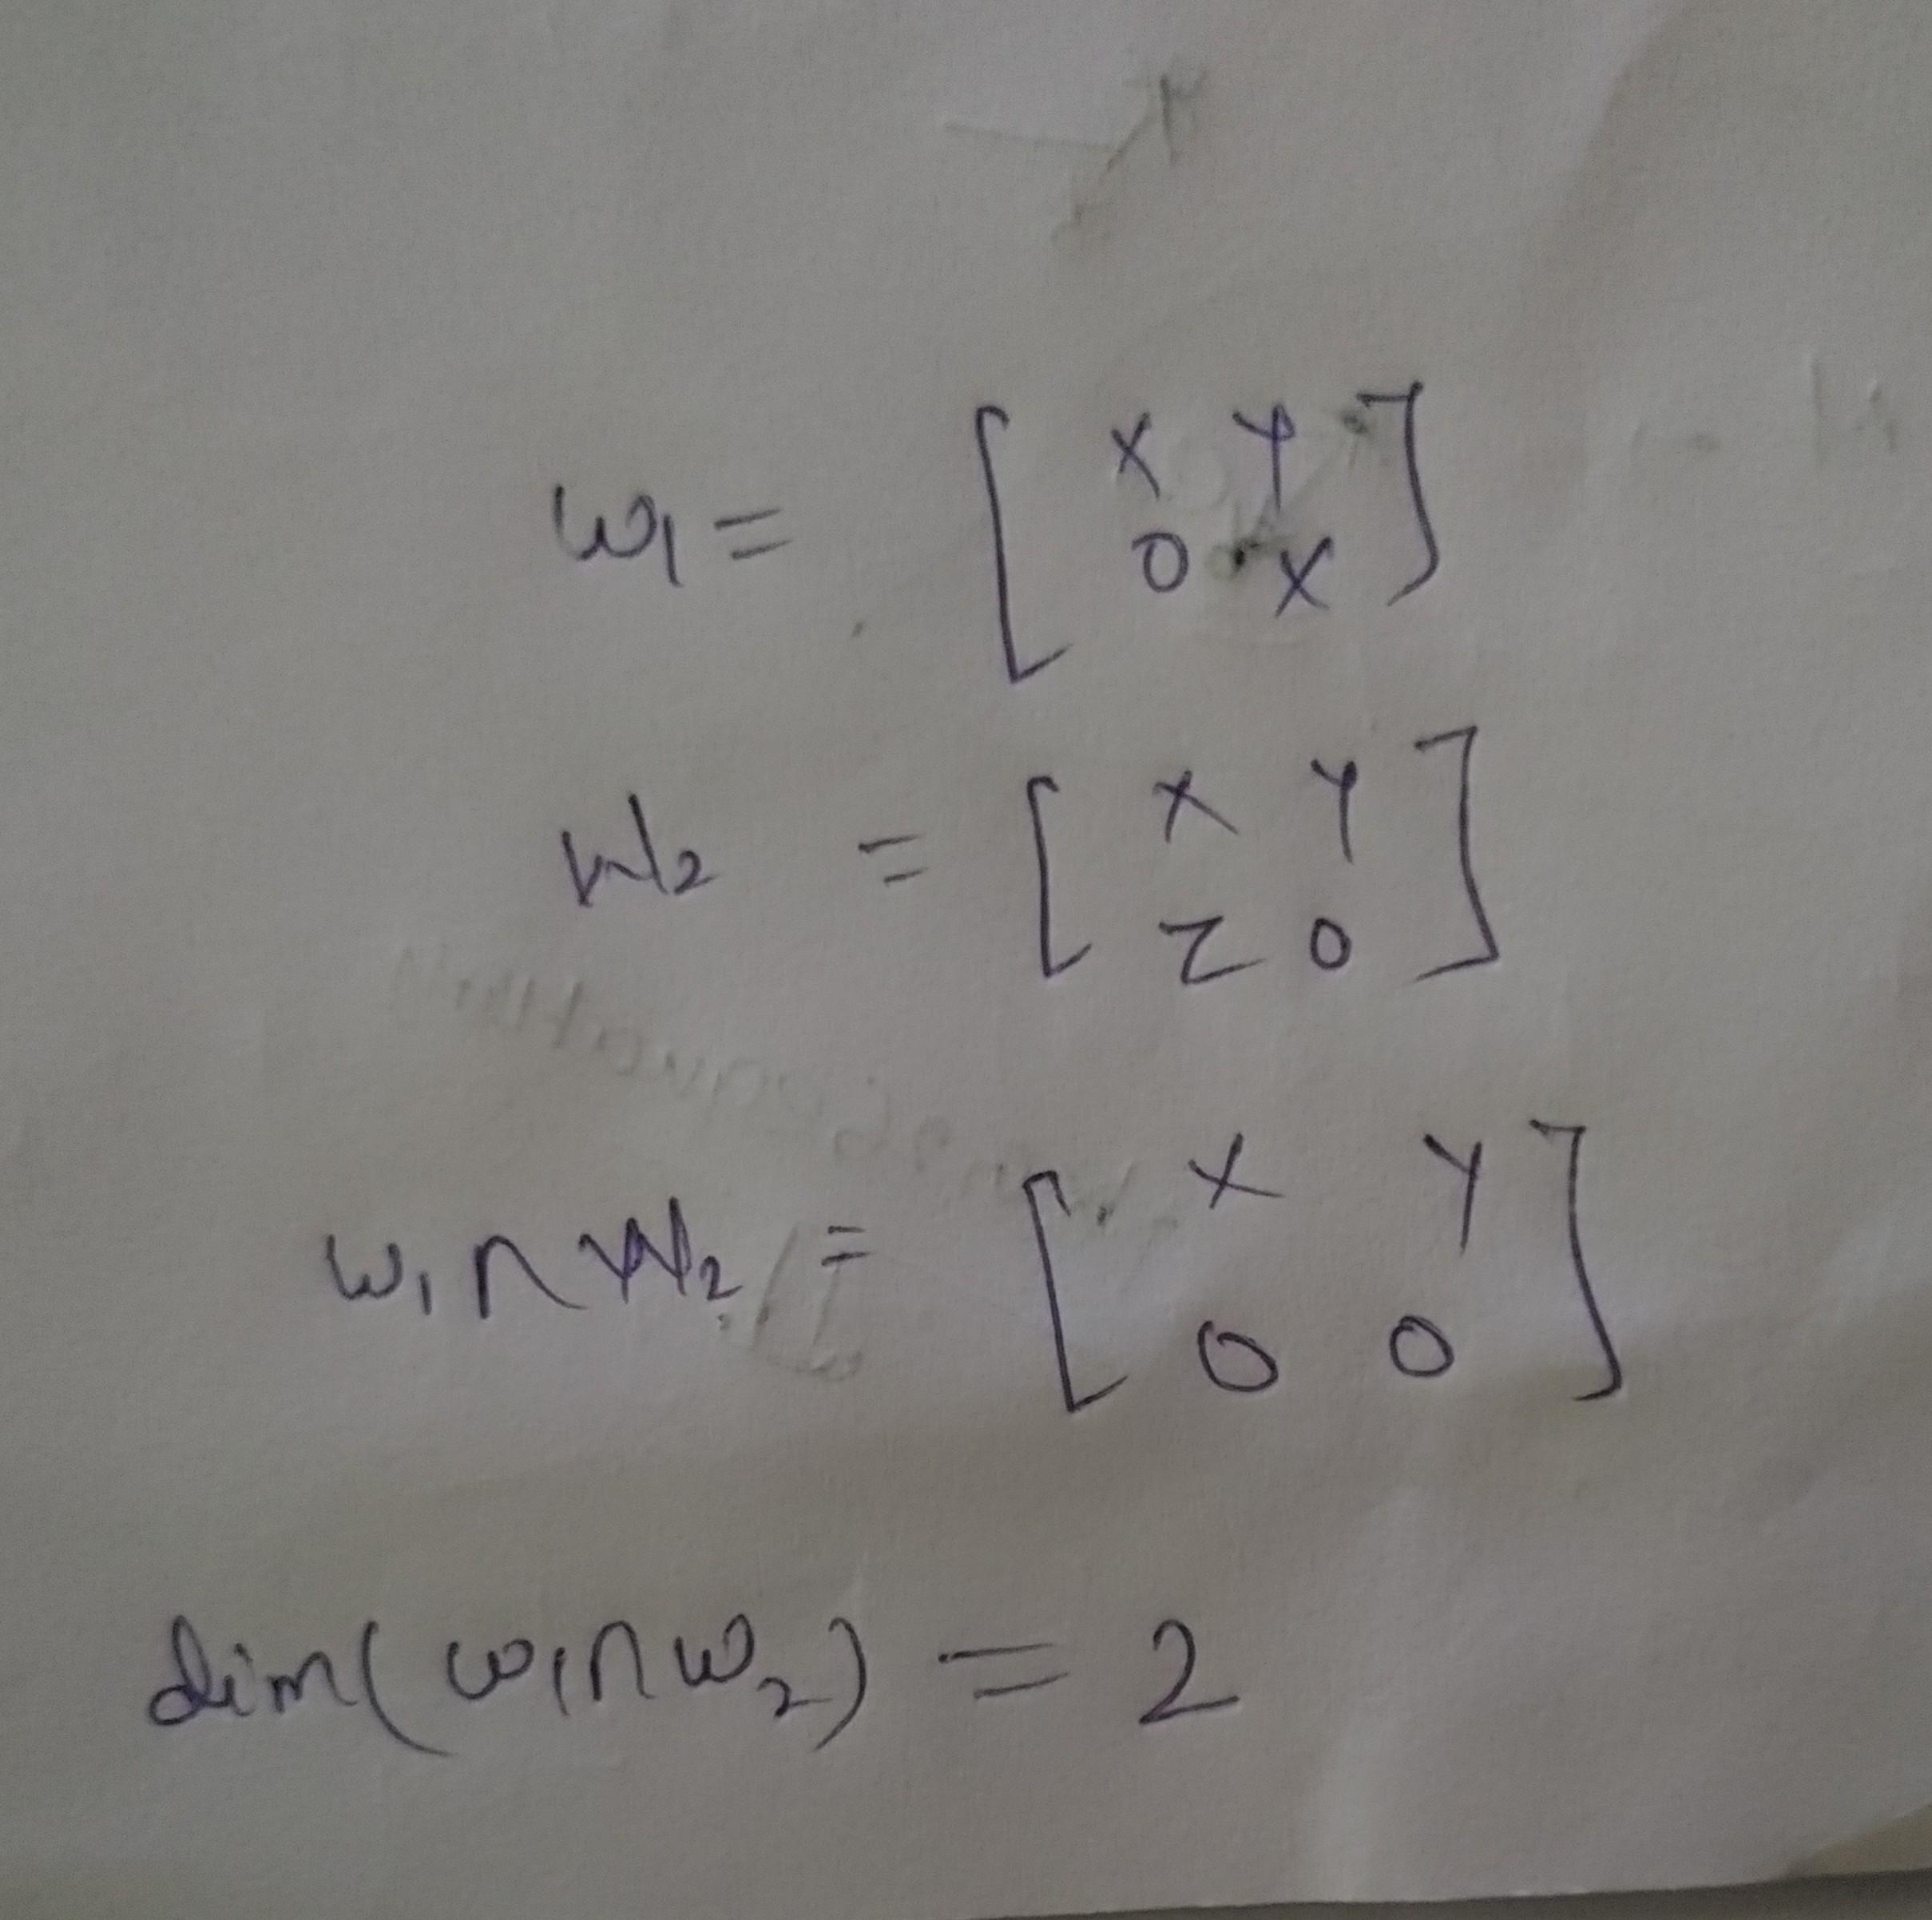 w1 = [ x y
0 x ]
W2 = [ x y
z 0 ]
W1 ∩ W2 = [ x y
0 0 ]
dim( w1 ∩ w2 ) = 2